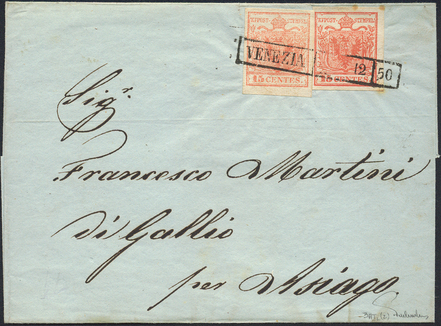 KKPOST-STEMPEL KKPOST-STEMPEL
15 CENTES. 15 CENTES.
VENEZIA 50
Sigr.
Francesco Martini
di Gallio
per Asiago